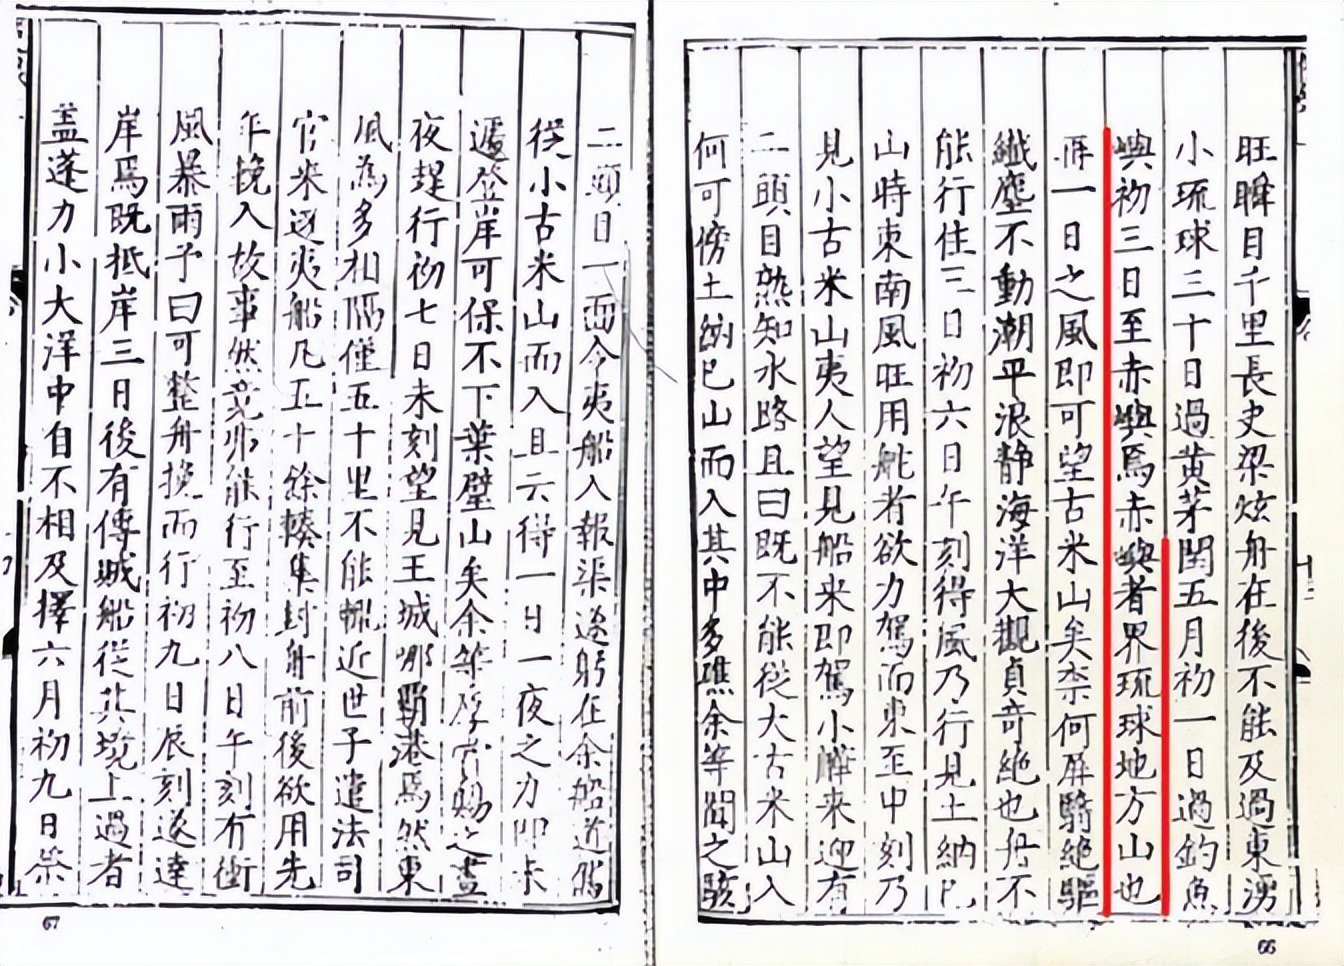 旺瞬目千里長史梁炫舟在後不能及過東湧
小琉球三十日過黄茅閏五月初一日過釣魚
嶼初三日至赤嶼焉赤嶼者界琉球地方山也
再一日之風即可望古米山矣柰何屏翳絶驅
纖塵不動潮平浪静海洋大觀真奇絶也舟不
能行住三日初六日午刻得風乃行見土納巴
山時東南風旺用舵者欲力駕而東至申刻乃
見小古米山夷人望見船来即駕小艀来迎有
二頭目熟知水路且曰既不能従大古米山入
何可傍土納巴山而入其中多礁余等聞之駭
二頭目一面令夷船入報渠遂躬在余船道駕
從小古米山而入且云得一日一夜之力即未
遽登岸可保不下葉壁山矣余等厚賜之盡
夜趕行初七日未刻望見王城哪覇港焉然東
風為多相隔僅五十里不能輒近世子遣法司
官来逐夷船凡五十餘輳集封舟前後欲用先
年挽入故事然竟不能行至初八日午刻有衝
風暴雨予曰可整舟换而行初九日辰刻遂達
岸焉既抵岸三日後有傳城船從其境上過者
盖蓬力小大洋中自不相及擇六月初九日祭
67
66